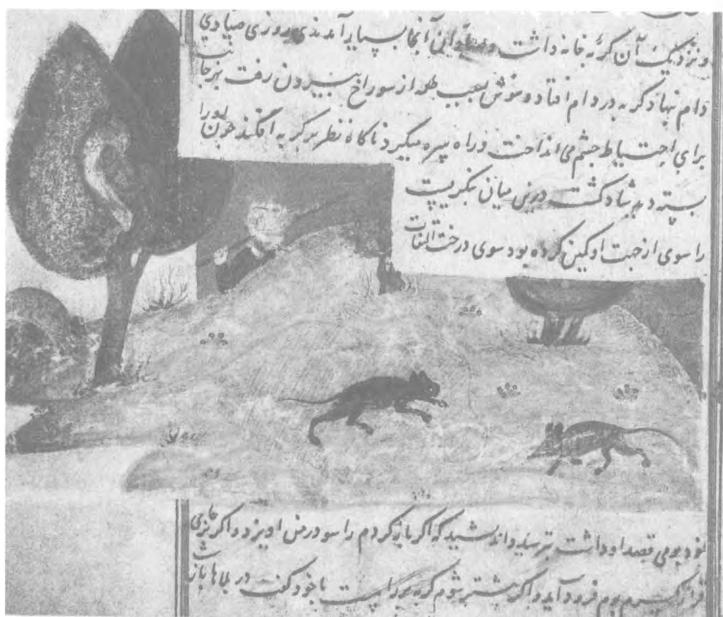 ونزدیک آن گربه خانه داشت و صیادان آنجا بسیار آمدندی روزی صیادی
دام نهاد گربه در دام افتاد و موش بطلب طعمه از سوراخ بیرون رفت بهر جا
برای احتیاط چشم می انداخت و راه سره میکرد ناگاه نظر بر گربه افگند چون او را
بسته دید شاد گشت درین میان بنگریست
را سوی از جهت او کمین کرده بود سوی درخت التفات
نمود بومی قصد او داشت بترسید و اندیشید که اگر باز گردم راسو در من آویزد و اگر
فرود آید و اگر پیشتر شوم گربه در راه است با خود گفت در بلاها باز